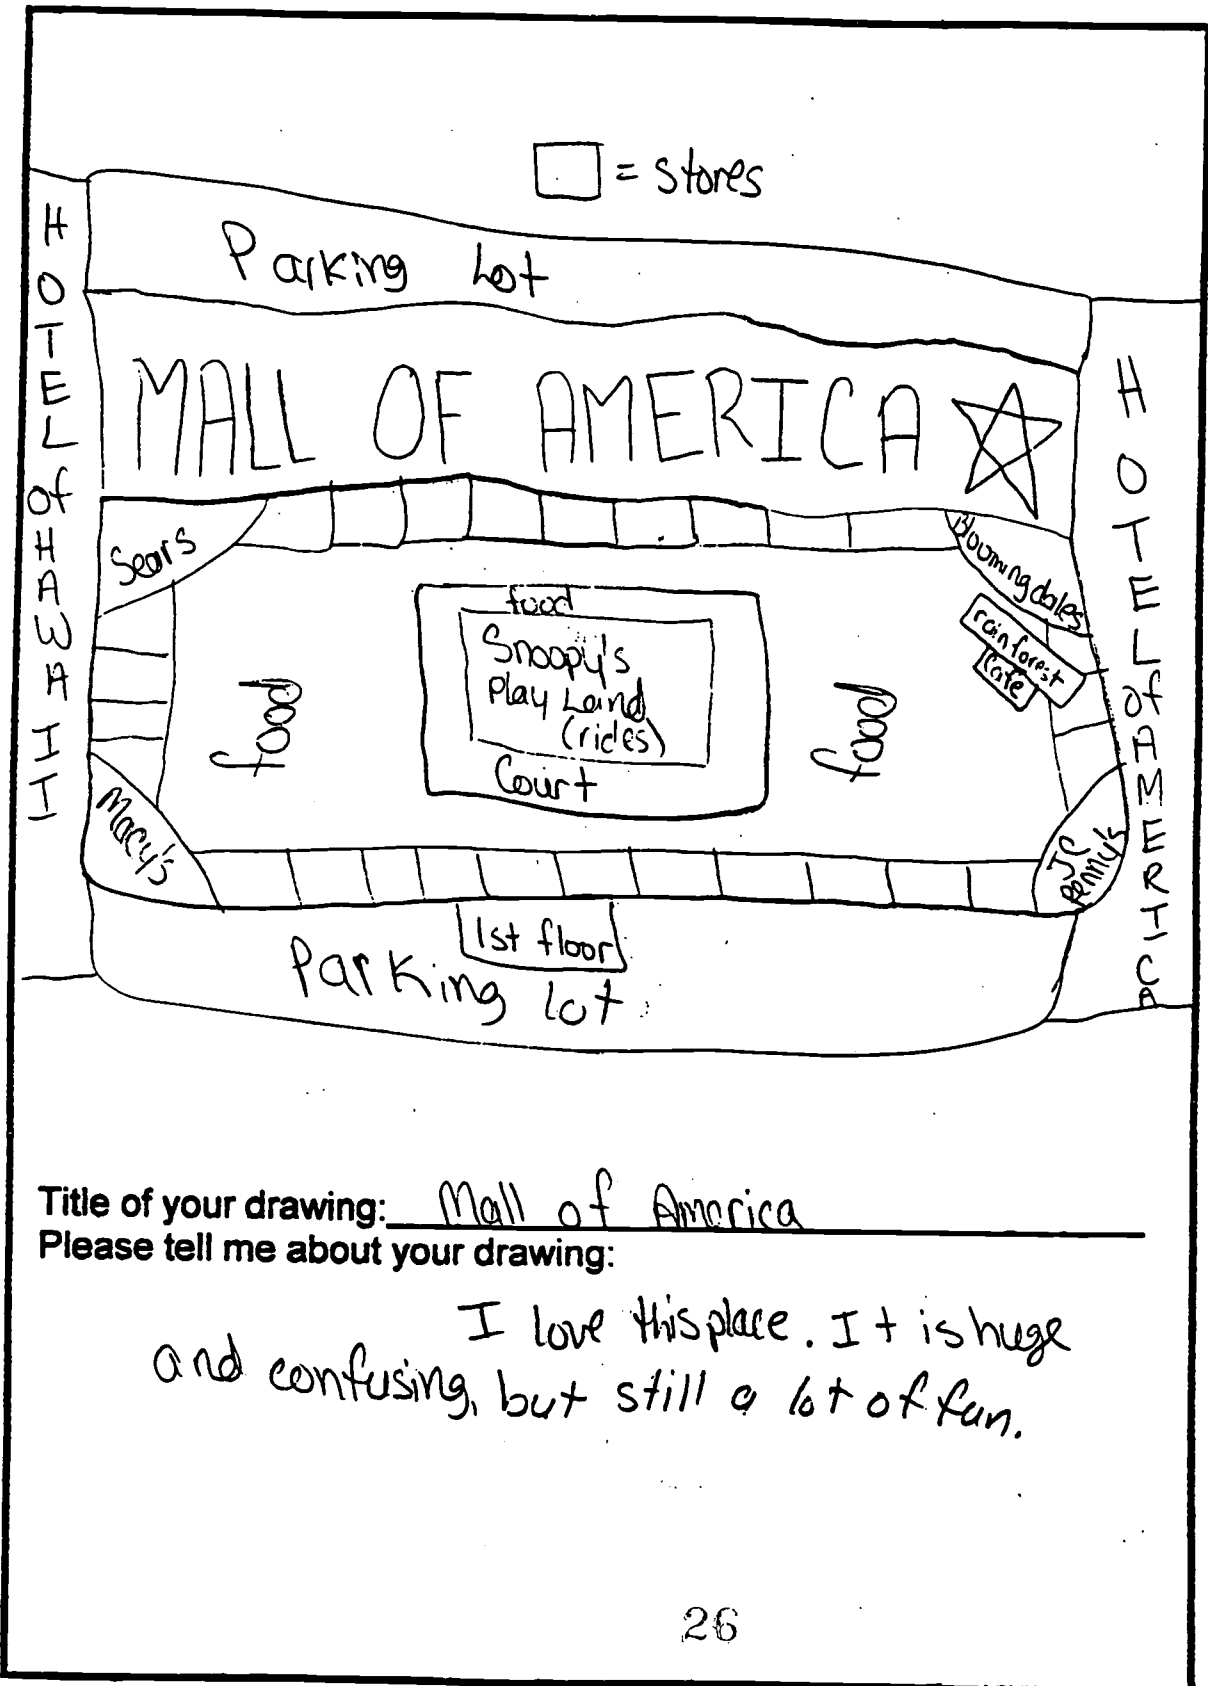 = stores
Parking Lot
HOTEL of HAWAII
MALL OF AMERICA
HOTEL of AMERICA
Sears
Bloomingdales
rainforest
Cafe
food
Snoopy's
Play Land
(rides)
Court
food
food
Macy's
JC
Penny's
1st floor
Parking lot
Title of your drawing: Mall of America
Please tell me about your drawing:
I love this place. It is huge
and confusing, but still a lot of fun.
26